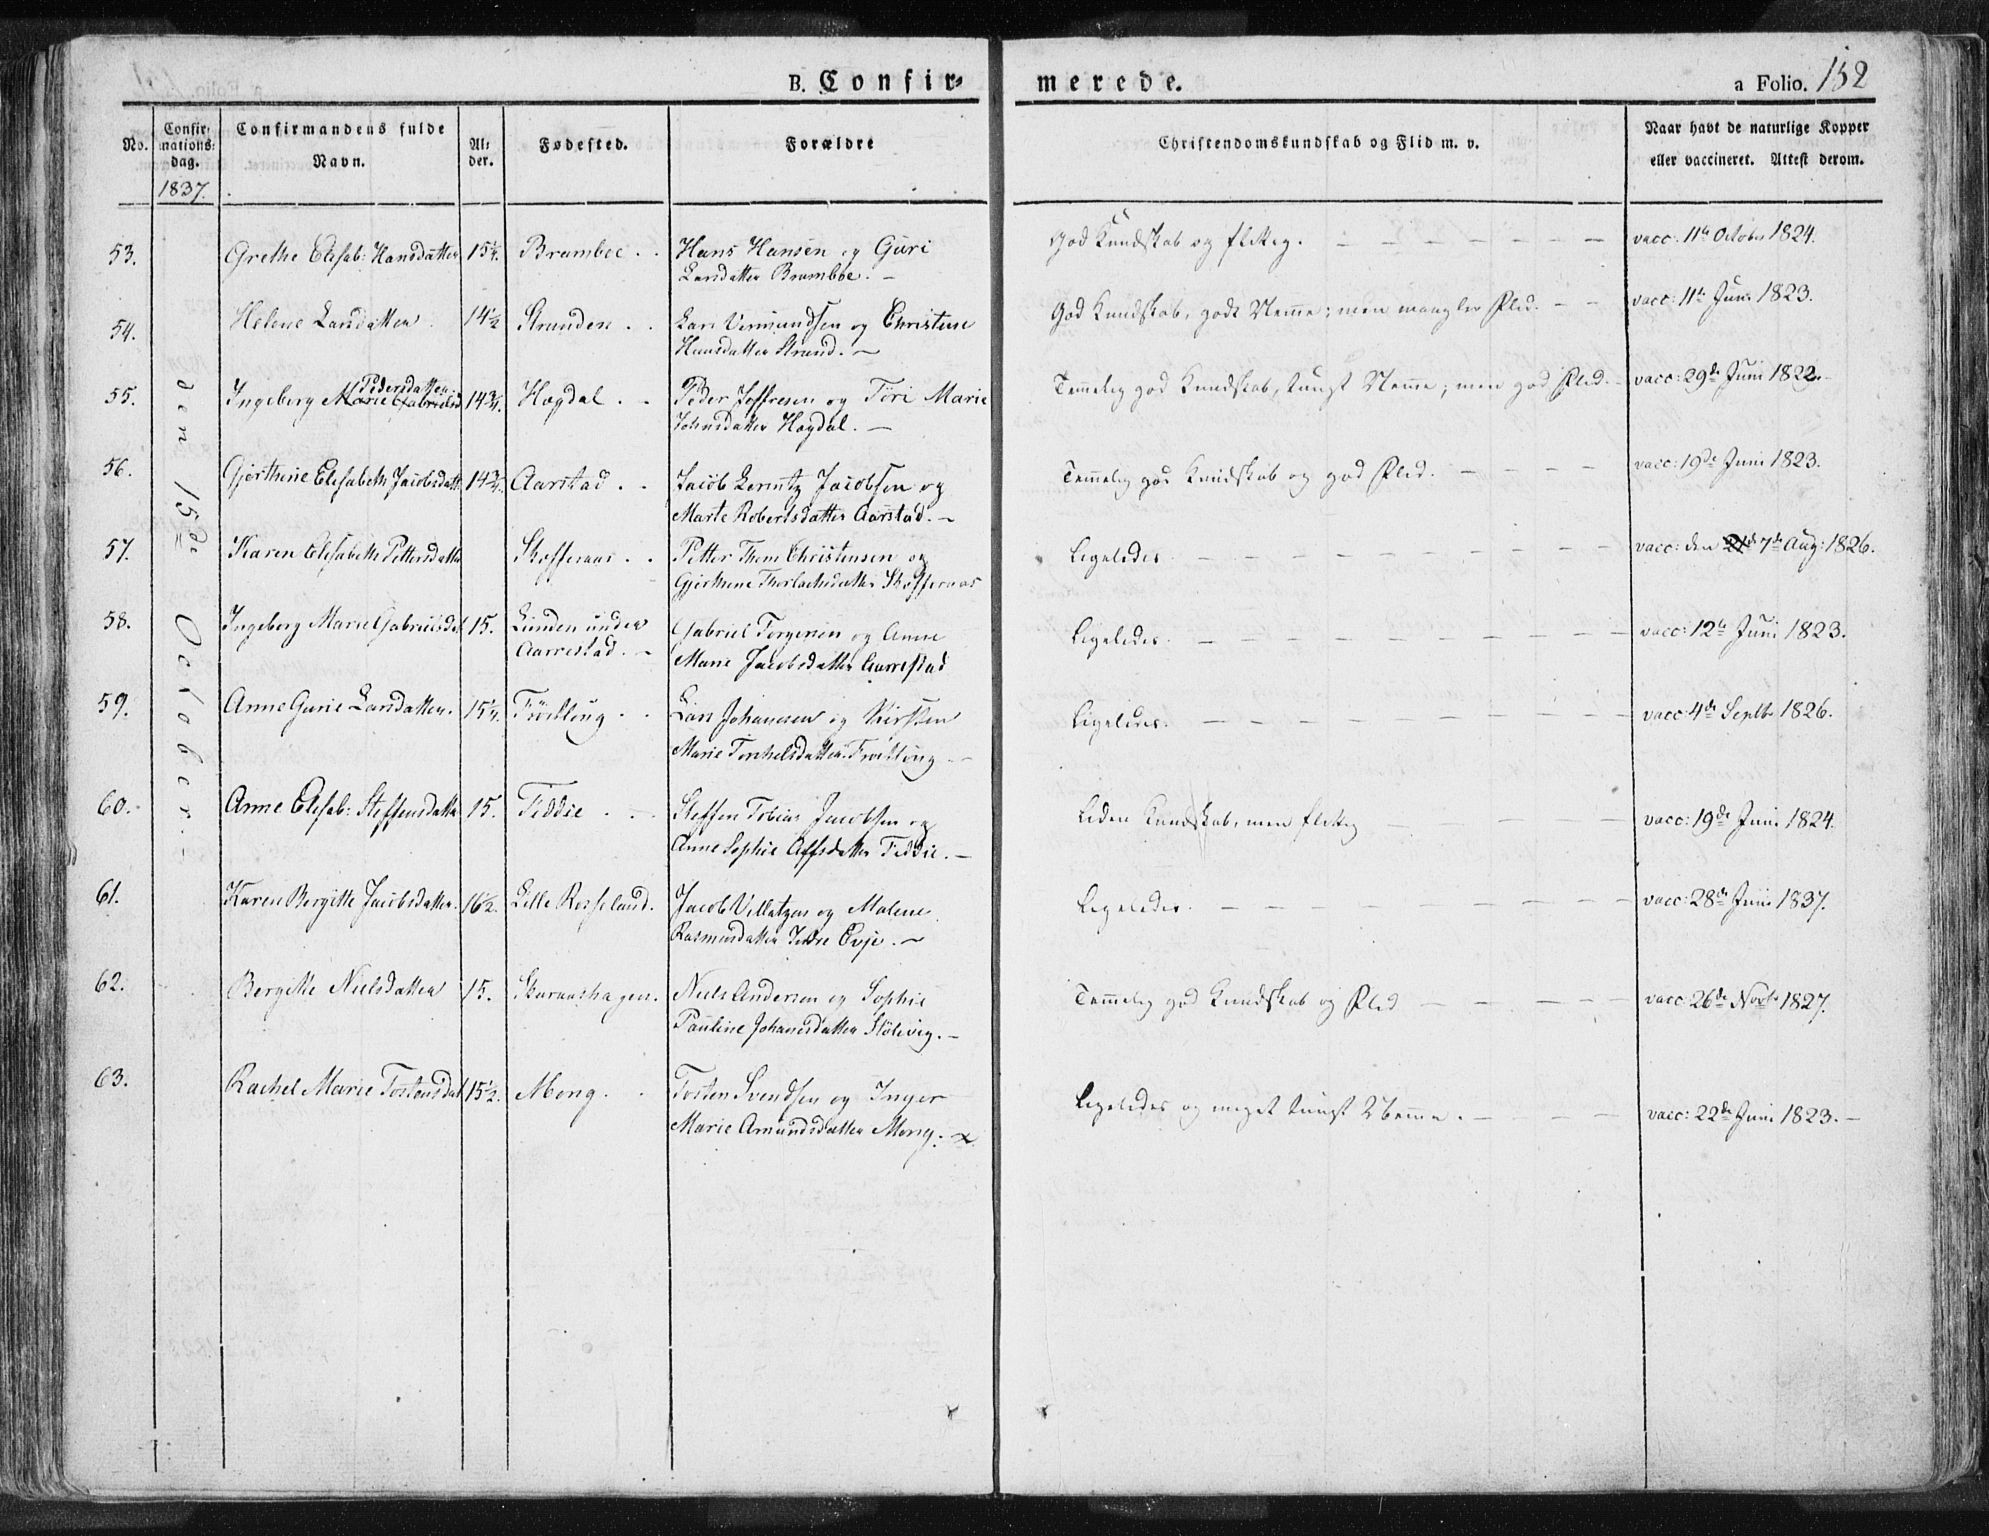 B. Confir-
merede.
a Folio. 152
No.
Confir-
mations-
dag.
1837.
Confirmandens fulde
Navn.
Al-
der.
Fødested.
Forældre
Christendomskundskab og Flid m. v.
Naar havt de naturlige Kopper
eller vaccineret. Attest derom.
den 15de October. -
53. Grethe Elisab: Hansdatter 15¼. Bramboe . . Hans Hansen og Guri God Kundskab og flittig. vacc: 11te October 1824.
Larsdatter Bramboe. -
54. Helene Larsdatter. 14½ Stranden . . Lars Vermundsen og Christine God Kundskab, godt Nemme; men mangler Flid. vacc: 11te Juni 1823.
Hansdatter Strand. -
Pedersdatter
55. Ingeborg Marie Gabrielsd 14¾. Hægdal . . Peder Joffresen og Töri Marie Temmelig god Kundskab, tungt Nemme; men god Flid. - vacc: 29de Juni 1822. -
Johnsdatter Hægdal. -
56. Gjerthine Elisabeth Jacobsdatt 14¾. Aarstad . . Jacob Lorentz Jacobsen og Temmelig god Kundskab og god Flid. vacc: 19de Juni 1823.
Marte Robertsdatter Aarstad. -
57. Karen Elisabeth Pettersdatter Skofteraas . . Petter Thom Christensen og Ligeledes vacc: den 21d 7de Aug: 1826.
Gjerthine Thorlachsdatter Skofteraas
58. Ingeborg Marie Gabrielsdat 15. Lunden under Gabriel Torgersen og Anne Ligeledes. vacc: 12te Juni 1823.
Aarrestad. - Marie Jacobsdatter Aarrestad
59. Anne Gurie Larsdatter. 15¼. Fröitlong . . Lars Johannesen og Kirsten Ligeledes. vacc: 4de Septbr 1826.
Marie Torkelsdatter Froitlong -
60. Anne Elisab: Steffensdatter 15. Fiddie . . Steffen Tobias Jacobsen og Liden Kundskab, men flittig vacc: 19de Juni 1824.
Anne Sophie Asfsdatter Fiddie. -
61. Karen Bergitte Jacobsdatter. 16½. Lille Rosseland. Jacob Villatzen og Malene Ligeledes. vacc: 28de Juni 1837.
Rasmusdatter Evje. -
62. Bergitte Nielsdatter 15. Skaraashagen. Niels Andersen og Sophie Temmelig god Kundskab og Flid vacc: 26de Novbr 1827.
Pauline Johanesdatter Stölevig. -
63. Rachel Marie Tostensdat 15½. Mong. . Tosten Svendsen og Inger Ligeledes og meget tungt Nemme. vacc: 22de Juni 1823. -
Marie Amundsdatter Mong. -